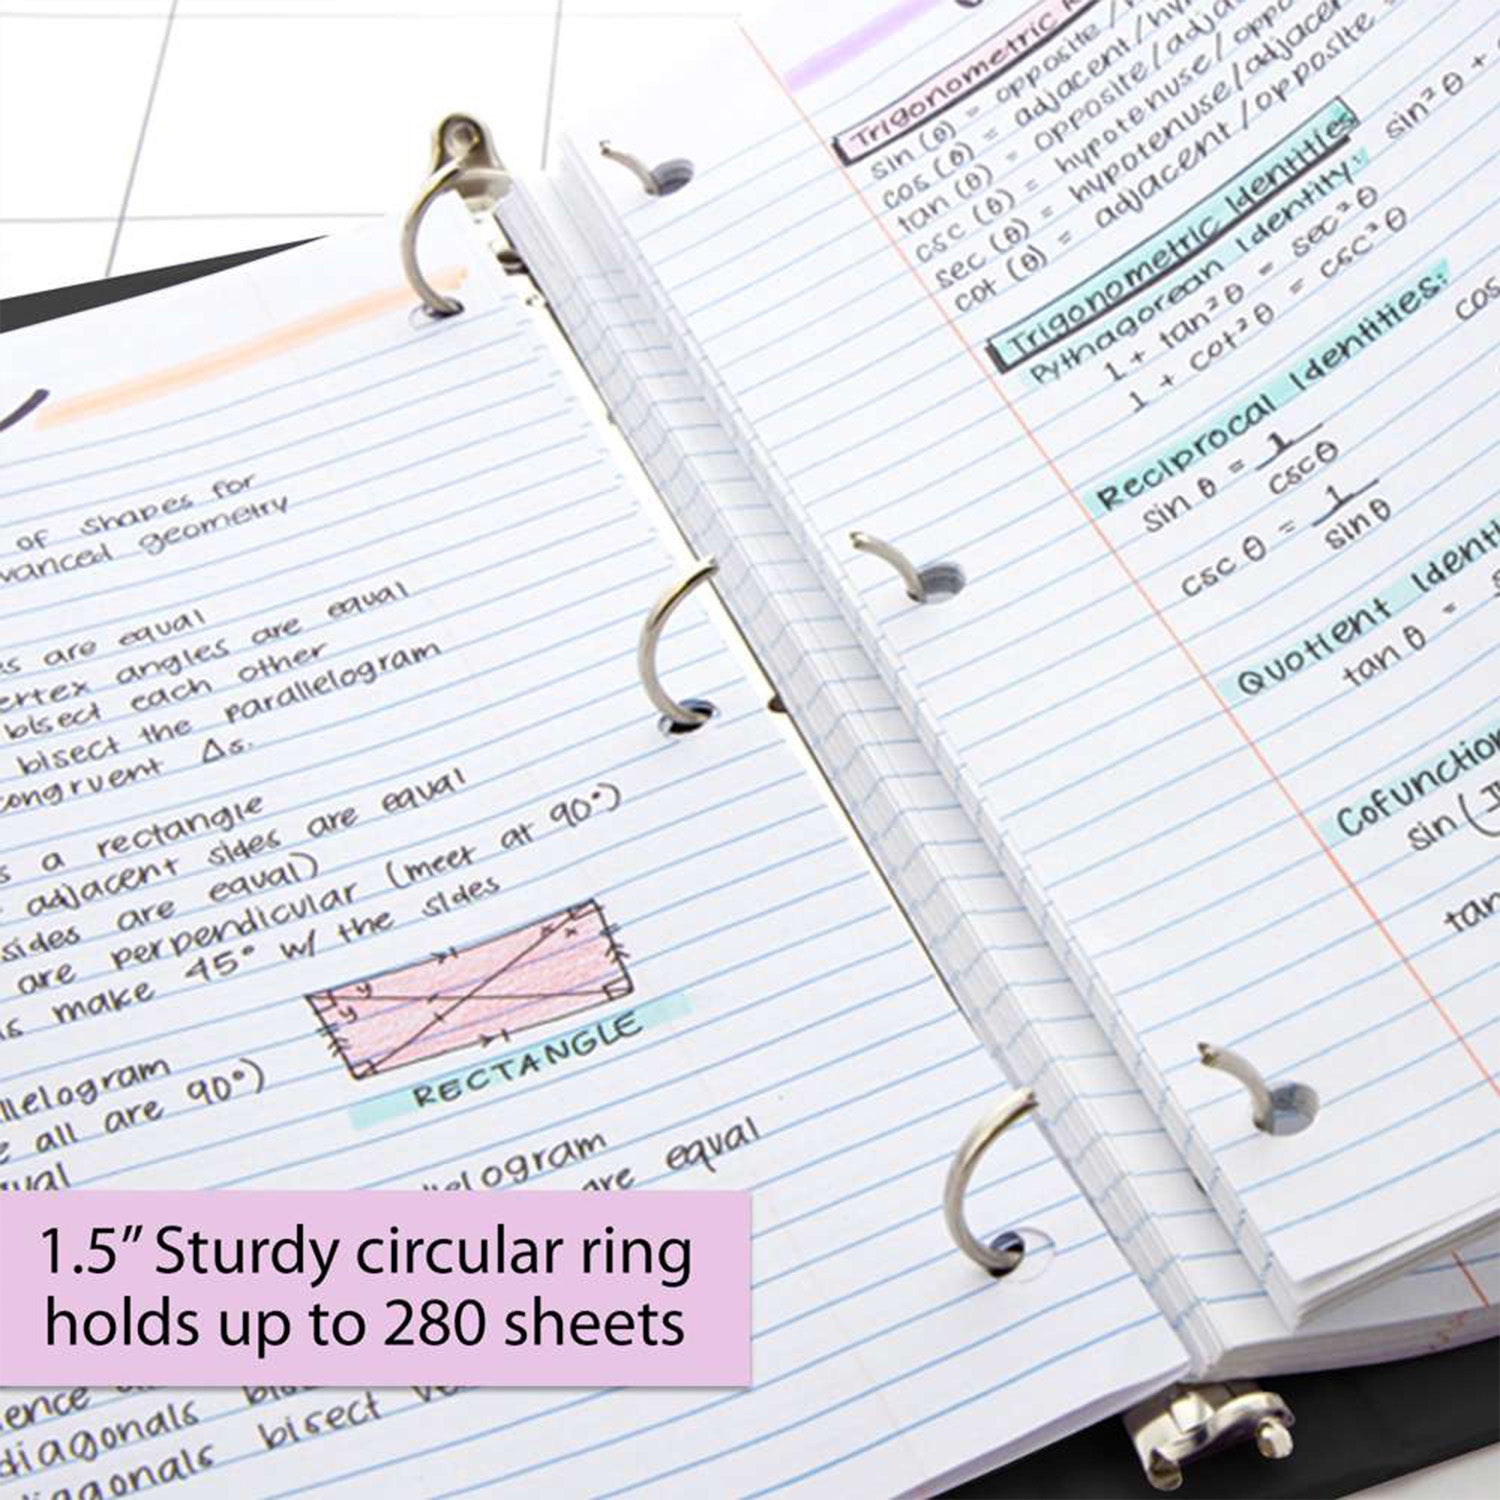 of shapes for
vanced geometry
es are equal
ertex angles are equal
bisect each other
bisect the parallelogram
congruent Δs.
s a rectangle
adjacent sides are equal
sides are equal)
are perpendicular (meet at 90°)
s make 45° w/ the sides
y
y
x
x
RECTANGLE
llelogram
e all are 90°)
ual
elogram
are equal
1.5” Sturdy circular ring
holds up to 280 sheets
ence
diagonals
diagonals bisect
Trigonometric
sin (θ) = opposite /
cos (θ) = adjacent/hy
tan (θ) = opposite/adja
csc (θ) = hypotenuse/oppo
sec (θ) = hypotenuse/adjacen
cot (θ) = adjacent/opposite
Trigonometric Identities
Pythagorean Identity: sin²θ +
1 + tan²θ = sec²θ
1 + cot²θ = csc²θ
Reciprocal Identities: cos
sin θ = 1
cscθ
csc θ = 1
sinθ
Quotient Identi
tan θ =
Cofunction
sin (
tan